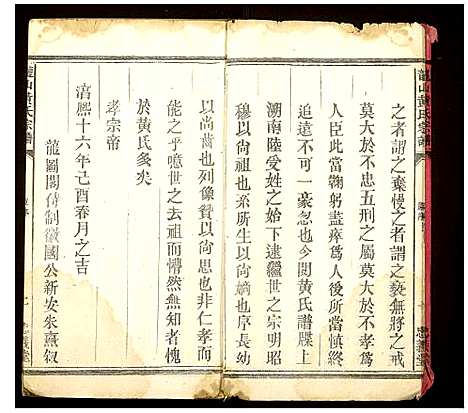 龍山黃氏宗譜
之者謂之棄慢之者謂之褻無將之戒
莫大於不忠五刑之屬莫大於不孝為
人臣此當鞠躬盡瘁為人後所當慎終
追遠不可一豪忽也今閱黃氏譜牒上
溯南陸受姓之始下逮繼世之宗明昭
穆以尚祖也系所生以尚嫡也序長幼
以尚齒也列像贊以尚思也非仁孝而
能之乎噫世之去祖而懵然無知者愧
於黃氏多矣
孝宗帝
淳熙十六年己酉春月之吉
龍圖閣待制徽國公新安朱熹叙
龍山黃氏宗譜
忠義堂